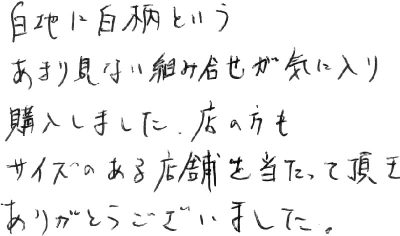 白地に白柄という
あまり見ない組み合せが気に入り
購入しました。店の方も
サイズのある店舗を当たって頂き
ありがとうございました。